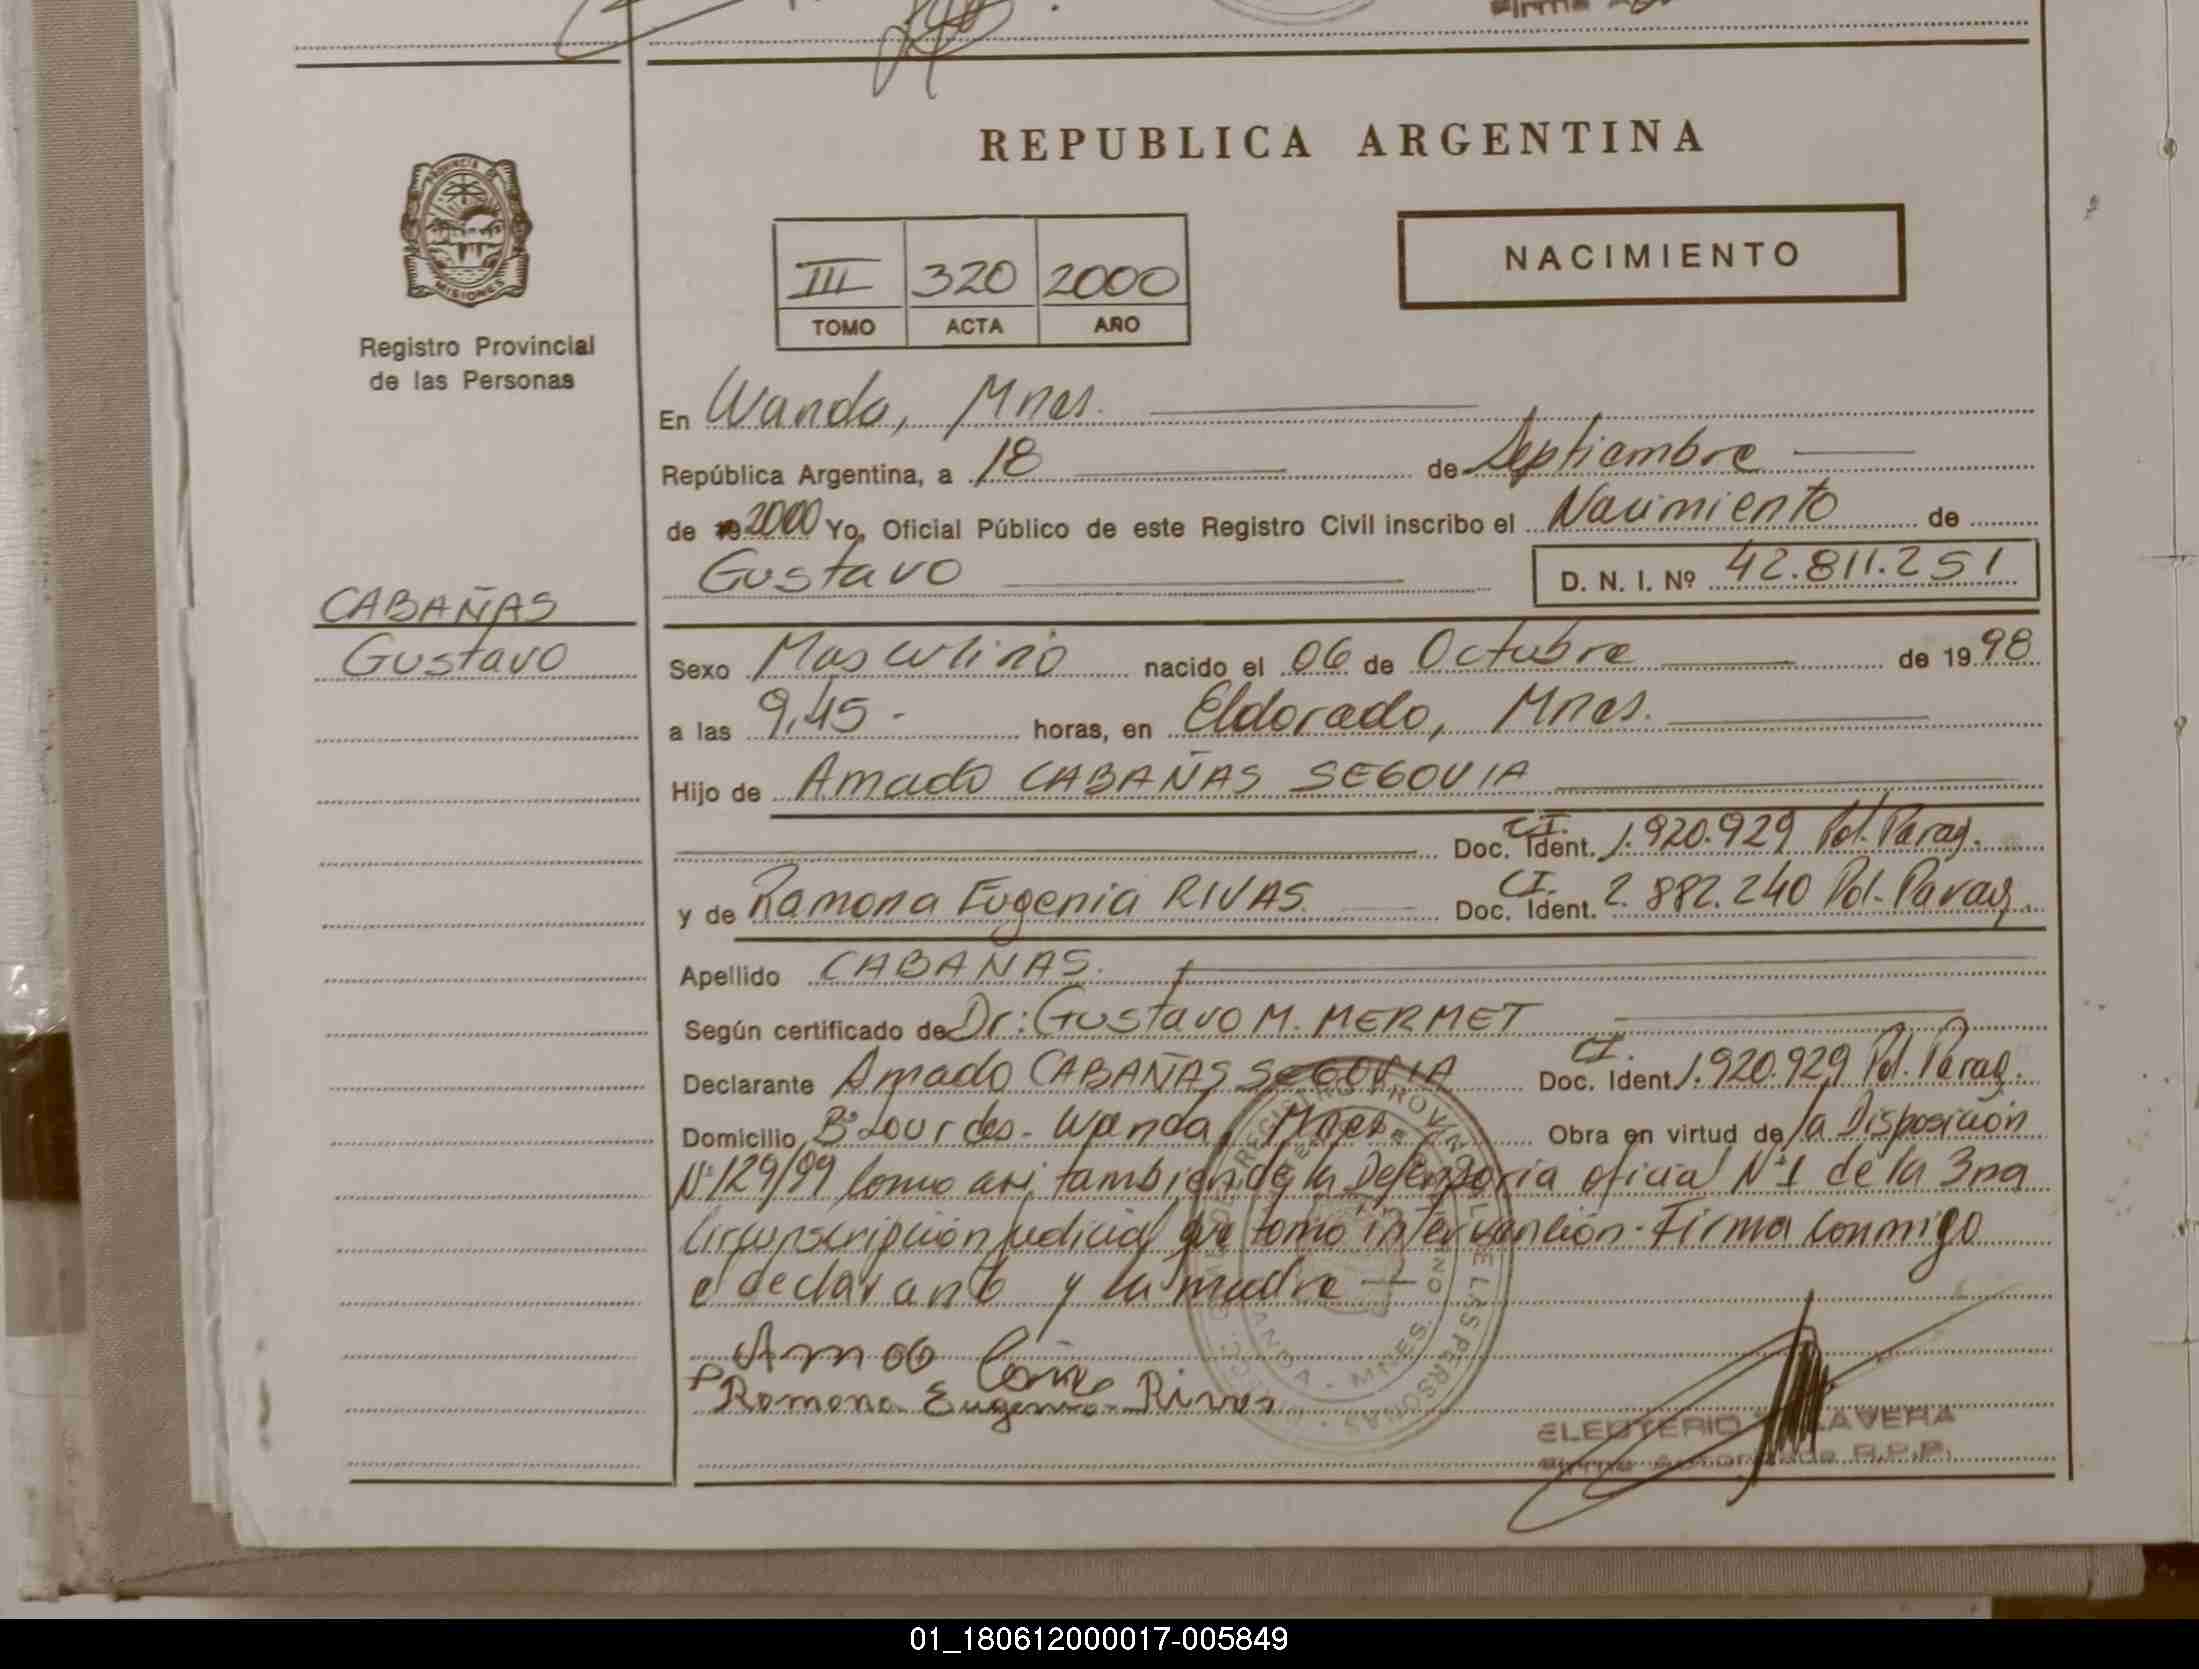 REPUBLICA ARGENTINA
PROVINCIA DE
MISIONES
Registro Provincial
de las Personas
III 320 2000
TOMO ACTA AÑO
NACIMIENTO
En Wanda, Mnes.
República Argentina, a 18 de Septiembre
de 19 2000 Yo, Oficial Público de este Registro Civil inscribo el Nacimiento de
Gustavo D. N. I. Nº 42.811.251
CABAÑAS
Gustavo
Sexo Masculino nacido el 06 de Octubre de 1998
a las 9,45- horas, en Eldorado, Mnes.
Hijo de Amado CABAÑAS SEGOVIA
Doc. Ident. C.I. 1.920.929 Pol. Parag.
y de Ramona Eugenia RIVAS. Doc. Ident. C.I. 2.882.240 Pol. Parag.
Apellido CABAÑAS.
Según certificado de Dr: Gustavo M. MERMET
Declarante Amado CABAÑAS SEGOVIA Doc. Ident C.I. 1.920.929 Pol. Parag.
Domicilio Bº Lourdes - Wanda, Mnes Obra en virtud de la Disposición
Nº 129/99 como asi tambien de la Defensoria oficial Nº 1 de la 3ra
Circunscripción judicial que tomo intervención. Firma conmigo
el declarante y la madre
Ramona Eugenia Rivas
ELEUTERIO
Firma Autorizada R.P.P.
WANDA - MNES.
01_180612000017-005849